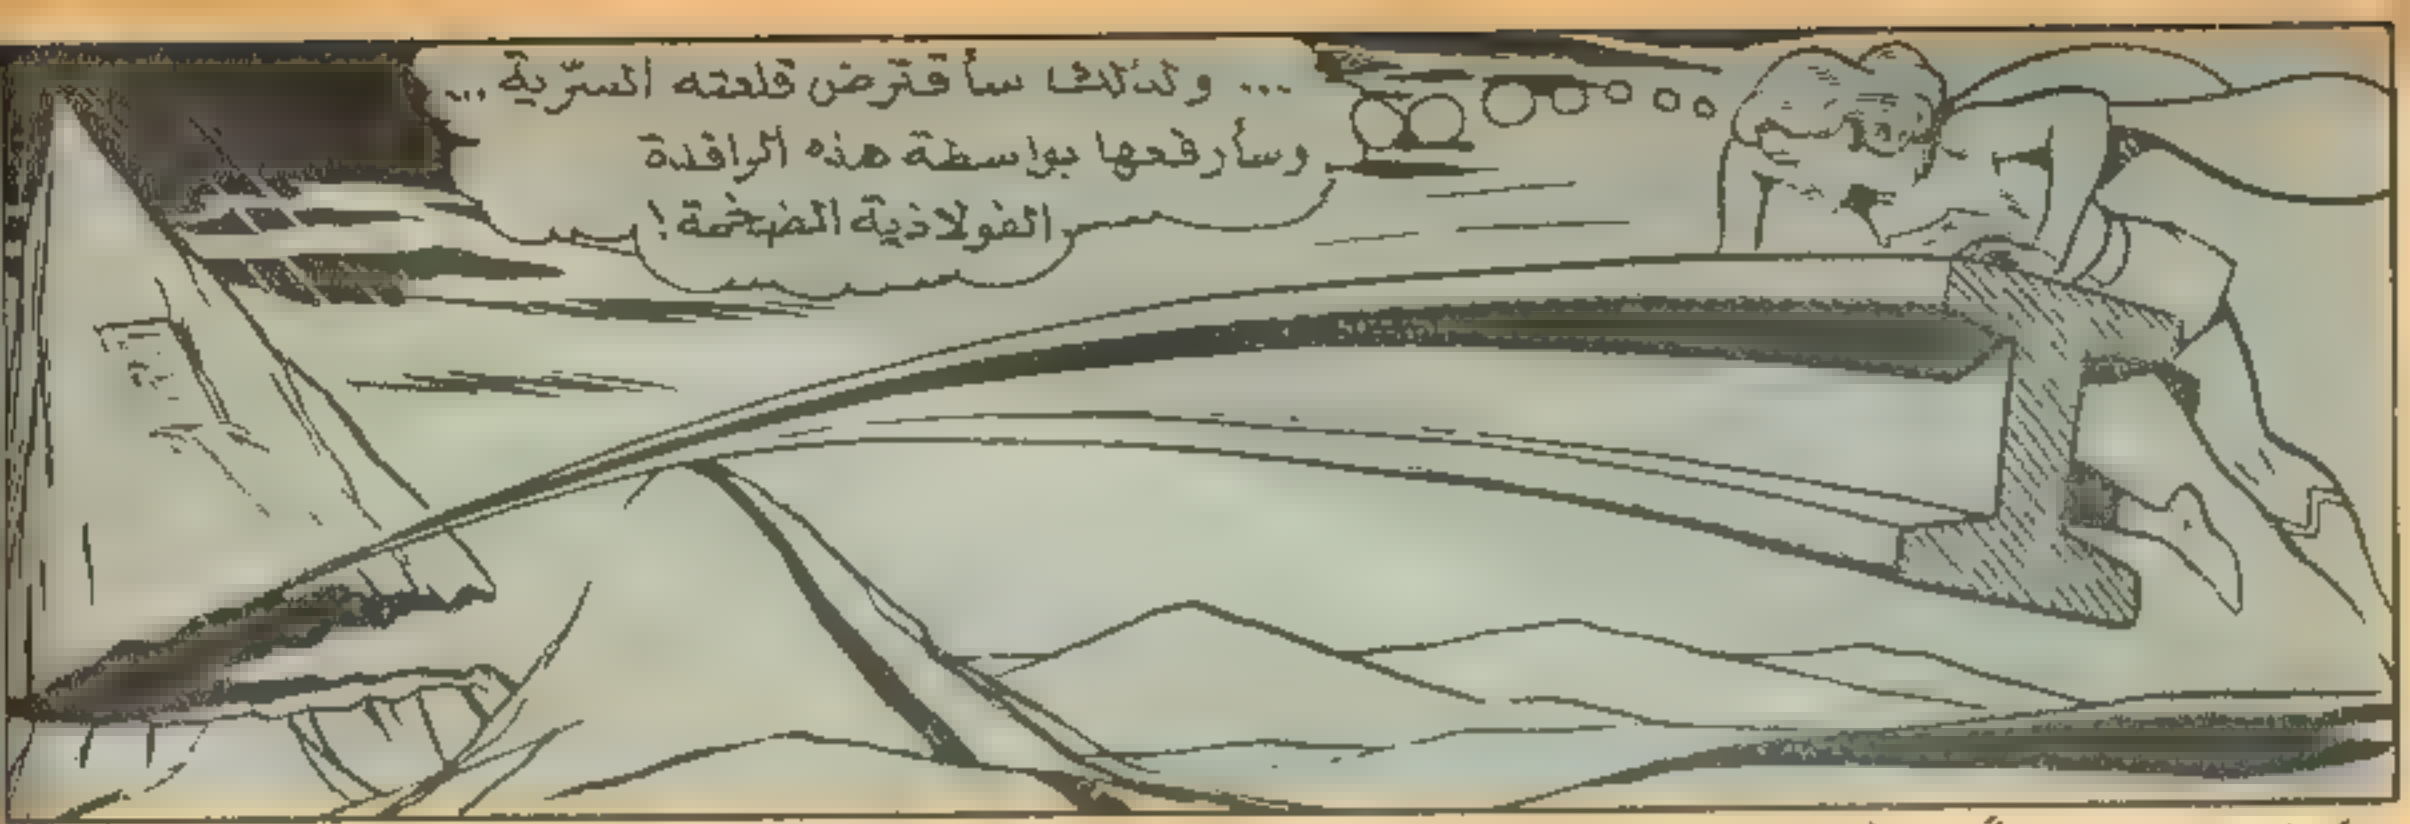 ... ولذلك سأقترض قلعته السرّية ...
وسأرفعها بواسطة هذه الرافدة
الفولاذية الضخمة!